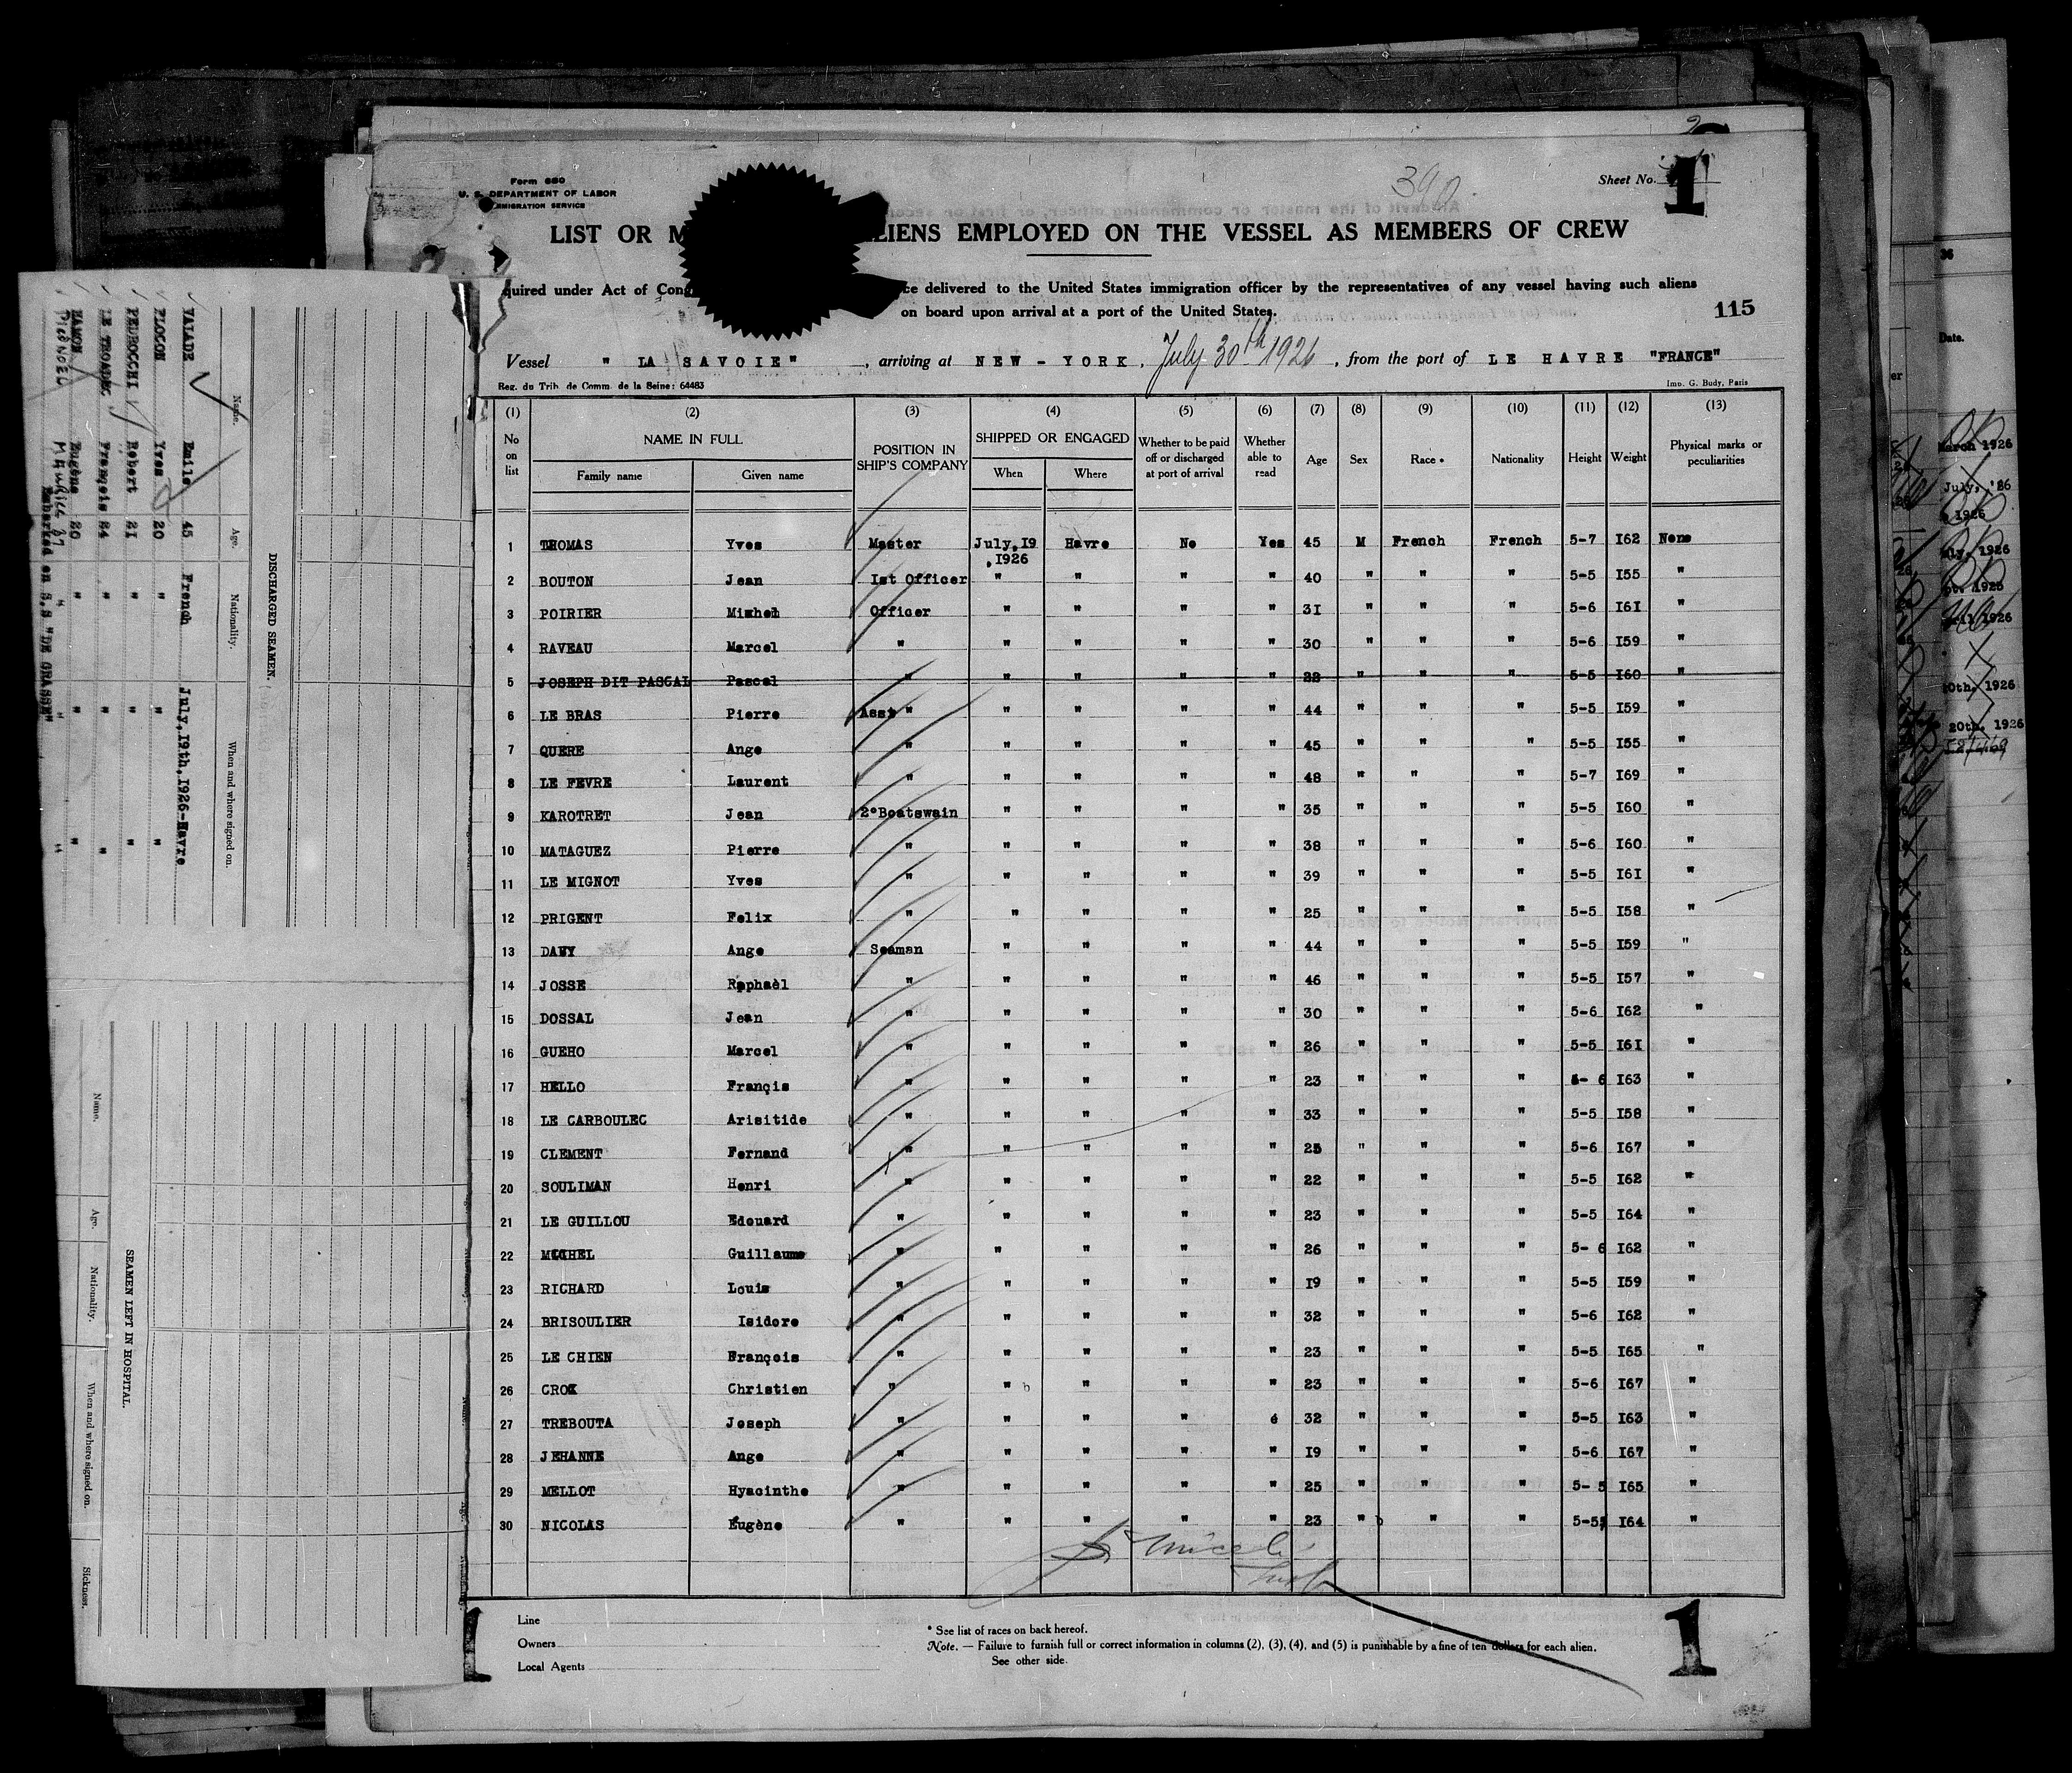 Form 680
U. S. DEPARTMENT OF LABOR
IMMIGRATION SERVICE
Sheet No. 1
LIST OR M LIENS EMPLOYED ON THE VESSEL AS MEMBERS OF CREW
quired under Act of Cong ce delivered to the United States immigration officer by the representatives of any vessel having such aliens
on board upon arrival at a port of the United States.
115
Vessel " LA SAVOIE" , arriving at NEW - YORK , July 30th 1926 , from the port of LE HAVRE "FRANCE"
Reg. du Trib. de Comm. de la Seine: 64483
Imp. G. Budy, Paris
(1) (2) (3) (4) (5) (6) (7) (8) (9) (10) (11) (12) (13)
No on list NAME IN FULL Family name Given name POSITION IN SHIP'S COMPANY SHIPPED OR ENGAGED When Where Whether to be paid off or discharged at port of arrival Whether able to read Age Sex Race * Nationality Height Weight Physical marks or peculiarities
1 THOMAS Yves Master July,I9 ,1926 Havre No Yes 45 M French French 5-7 I62 None
2 BOUTON Jean Ist Officer " " " " 40 " " " 5-5 I55 "
3 POIRIER Michel Officer " " " " 3I " " " 5-6 I6I "
4 RAVEAU Marcel " " " " " 30 " " " 5-6 I59 "
5 JOSEPH DIT PASCAL Pascal " " " " " 22 " " " 5-5 I60 "
6 LE BRAS Pierre Asst " " " " " 44 " " " 5-5 I59 "
7 QUERE Ange " " " " " 45 " " " 5-5 I55 "
8 LE FEVRE Laurent " " " " " 48 " " " 5-7 I69 "
9 KAROTRET Jean 2°Boatswain " " " " 35 " " " 5-5 I60 "
10 MATAGUEZ Pierre " " " " " 38 " " " 5-6 I60 "
11 LE MIGNOT Yves " " " " " 39 " " " 5-5 I6I "
12 PRIGENT Felix " " " " " 25 " " " 5-5 I58 "
13 DAVY Ange Seaman " " " " 44 " " " 5-5 I59 "
14 JOSSE Raphaèl " " " " " 46 " " " 5-5 I57 "
15 DOSSAL Jean " " " " " 30 " " " 5-6 I62 "
16 GUEHO Marcel " " " " " 26 " " " 5-5 I6I "
17 HELLO Françis " " " " " 23 " " " 5- 6 I63 "
18 LE CARBOULEC Arisitide " " " " " 33 " " " 5-5 I58 "
19 CLEMENT Fernand " " " " " 25 " " " 5-6 I67 "
20 SOULIMAN Henri " " " " " 22 " " " 5-5 I62 "
21 LE GUILLOU Edouard " " " " " 23 " " " 5-5 I64 "
22 MICHEL Guillaume " " " " " 26 " " " 5- 6 I62 "
23 RICHARD Louis " " " " " I9 " " " 5-5 I59 "
24 BRISOULIER Isidore " " " " " 32 " " " 5-6 I62 "
25 LE CHIEN François " " " " " 23 " " " 5-5 I65 "
26 CROX Christien " " " " " 23 " " " 5-6 I67 "
27 TREBOUTA Joseph " " " " 6 32 " " " 5-5 I63 "
28 JEHANNE Ange " " " " " I9 " " " 5-6 I67 "
29 MELLOT Hyacinthe " " " " " 25 " " " 5- 5 I65 "
30 NICOLAS Eugène " " " " " 23 " " " 5-5 I64 "
Line
Owners
Local Agents
* See list of races on back hereof.
Note. — Failure to furnish full or correct information in columns (2), (3), (4), and (5) is punishable by a fine of ten dollars for each alien.
See other side.
1 1
DISCHARGED SEAMEN.
Name. Age. Nationality. When and where signed on.
VALADE Emile 45 French July,I9th,I926-Havre
PLOCON Yves 20 " " "
PEDROCCHI Robert 2I " " "
LE TROADEC François 24 " " "
HAMON Eugène 20 " " "
PIGNOEL MAURICE 37 " " "
Embarked on S.S "DE GRASSE"
SEAMEN LEFT IN HOSPITAL.
Name. Age. Nationality. When and where signed on. Sickness.
Date.
March 1926
July, '26
1926
1926
1926
10th, 1926
20th, 1926